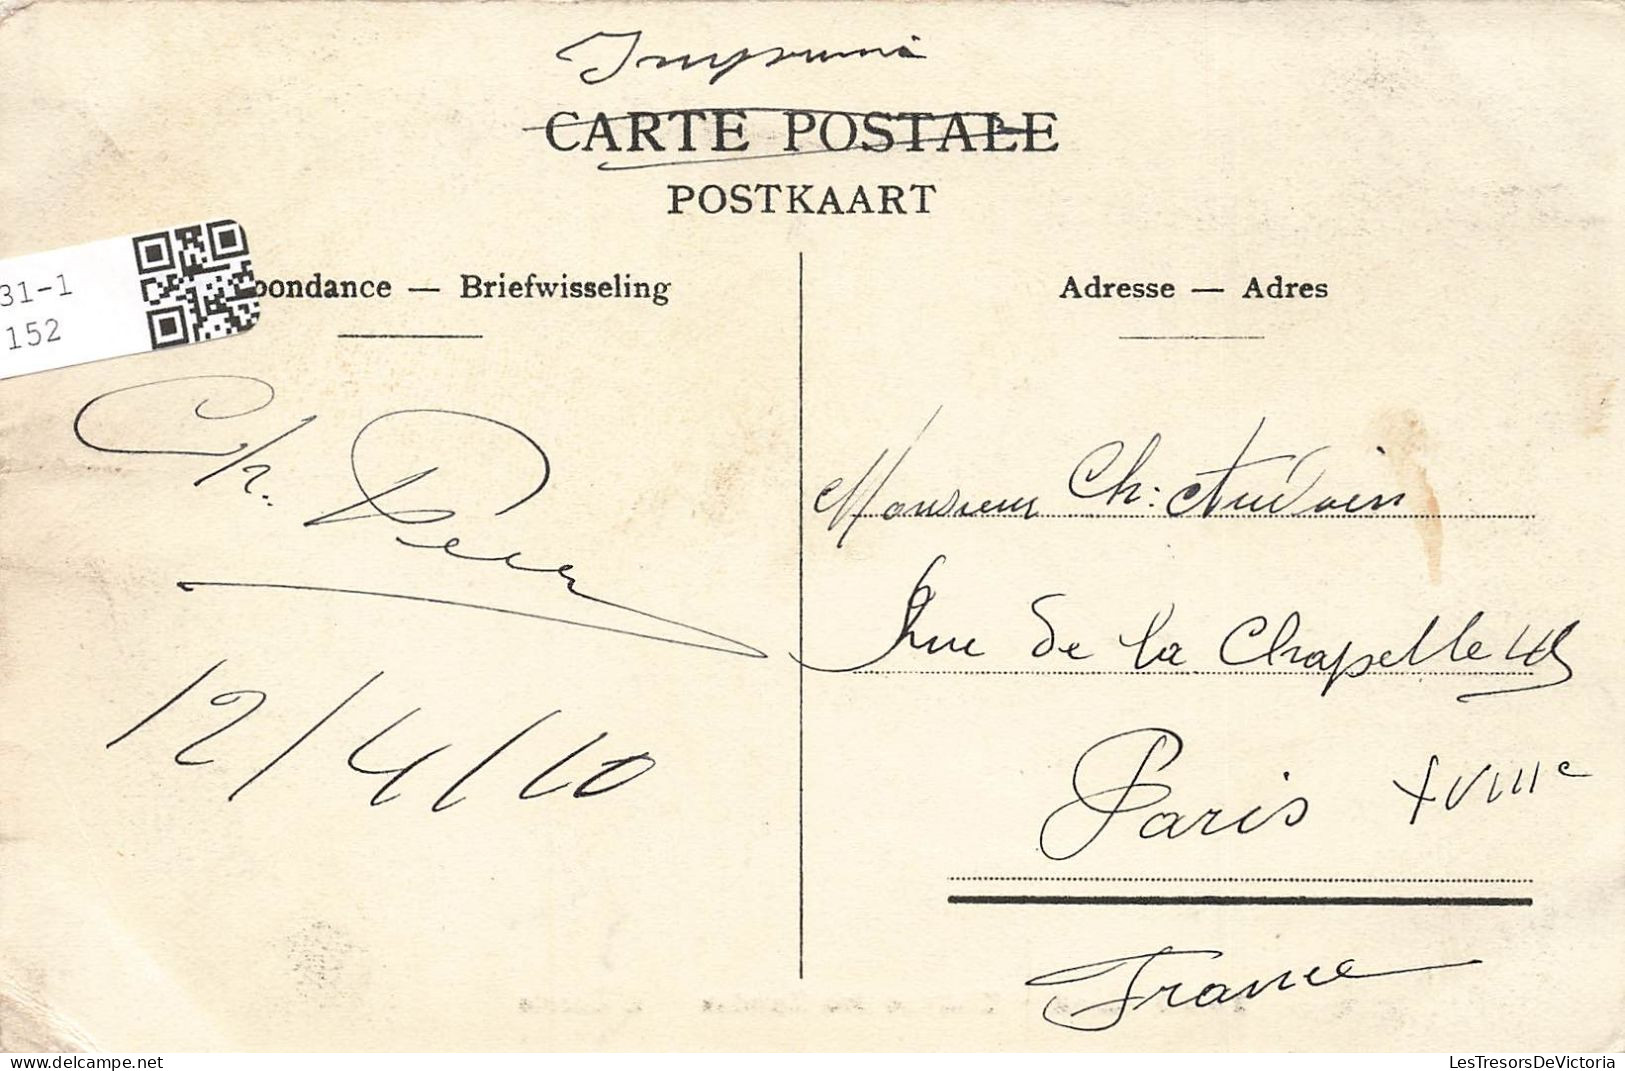 Imprimé
CARTE POSTALE
POSTKAART
31-1
152
pondance — Briefwisseling
Adresse — Adres
Ch.
12/4/10
Monsieur Ch:
Rue de la Chapelle
Paris XVIIIe
France
LesTresorsDeVictoria
www.delcampe.net